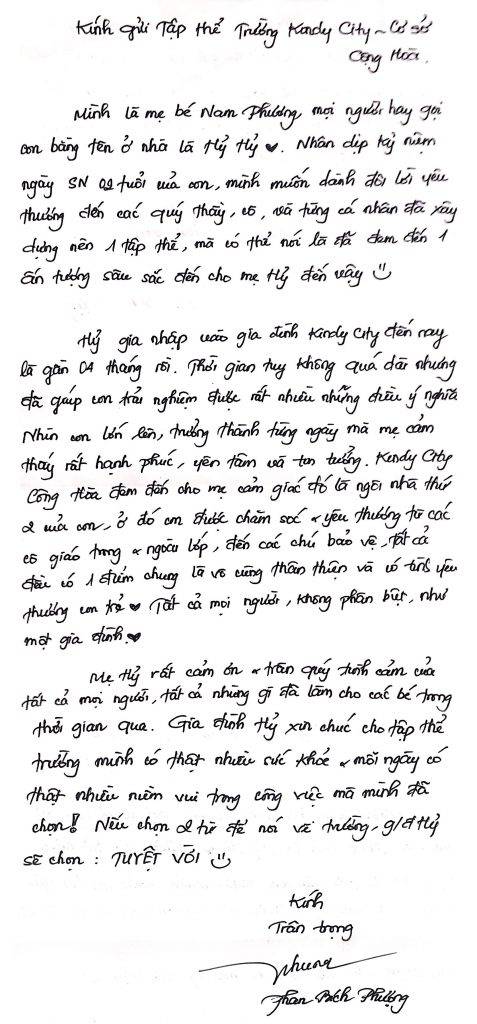 Kính gửi Tập thể Trường Kindy City - Cơ sở
Cộng Hòa.
Mình là mẹ bé Nam Phương, mọi người hay gọi
con bằng tên ở nhà là Hỷ Hỷ ♥. Nhân dịp kỷ niệm
ngày SN 02 tuổi của con, mình muốn dành đôi lời yêu
thương đến các quý thầy, cô, và từng cá nhân đã xây
dựng nên 1 tập thể, mà có thể nói là đã đem đến 1
ấn tượng sâu sắc đến cho mẹ Hỷ đến vậy ☺
Hỷ gia nhập vào gia đình Kindy City đến nay
là gần 04 tháng rồi. Thời gian tuy không quá dài nhưng
đã giúp con trải nghiệm được rất nhiều những điều ý nghĩa
Nhìn con lớn lên, trưởng thành từng ngày mà mẹ cảm
thấy rất hạnh phúc, yên tâm và tin tưởng. Kindy City
Cộng Hòa đem đến cho mẹ cảm giác đó là ngôi nhà thứ
2 của con, ở đó con được chăm sóc & yêu thương từ các
cô giáo trong & ngoài lớp, đến các chú bảo vệ, tất cả
đều có 1 điểm chung là vô cùng thân thiện và có tình yêu
thương con trẻ ♥ Tất cả mọi người, không phân biệt, như
một gia đình. ♥
Mẹ Hỷ rất cảm ơn & trân quý tình cảm của
tất cả mọi người, tất cả những gì đã làm cho các bé trong
thời gian qua. Gia đình Hỷ xin chúc cho tập thể
trường mình có thật nhiều sức khỏe & mỗi ngày có
thật nhiều niềm vui trong công việc mà mình đã
chọn! Nếu chọn 2 từ để nói về trường, g/đ Hỷ
sẽ chọn : TUYỆT VỜI ☺
Kính
Trân trọng
Phan Bích Phượng